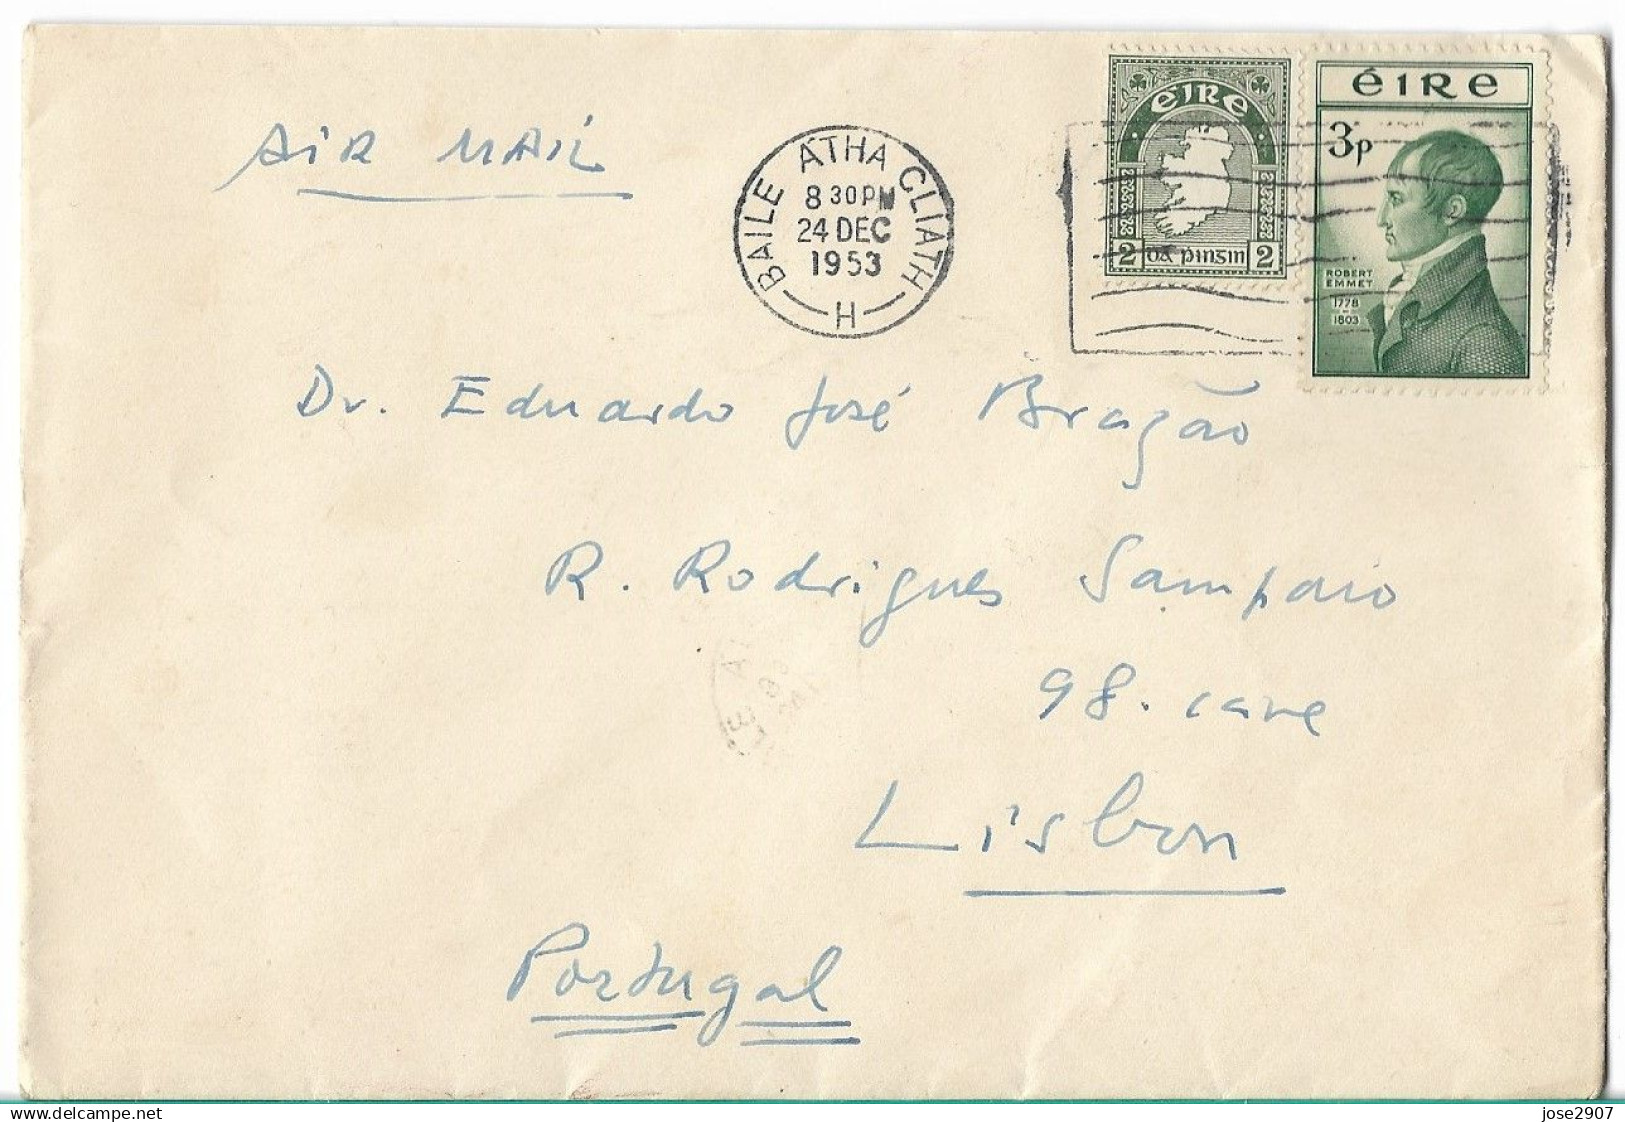 AIR MAIL
BAILE ÁTHA CLIATH
8 30 PM
24 DEC
1953
H
éIRe
2 Dá pinginn 2
éIRe
3p
ROBERT
EMMET
1778
-
1803
Dr. Eduardo José Bragão
R. Rodrigues Sampaio
98. cave
Lisbon
Portugal
www.delcampe.net
jose2907